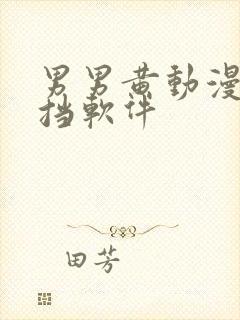 男男黄動漫
挡軟件
田芳